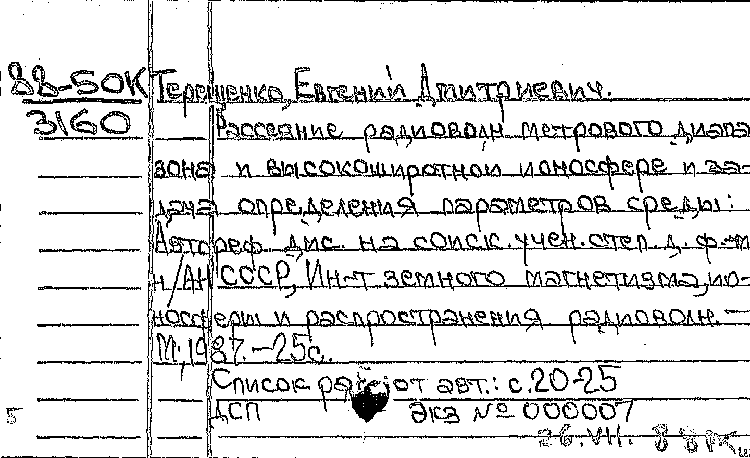 88-50К Терещенко, Евгений Дмитриевич.
3160 Рассеяние радиоволн метрового диапа
зона в высокоширотной ионосфере и за-
дача определения параметров среды:
Автореф. дис. на соиск. учен. степ. д. ф.-м
н/АН СССР, Ин-т земного магнетизма, ио-
носферы и распространения радиоволн. –
М., 1987. – 25 с.
Список работ авт.: с. 20-25
ДСП Экз № 000007
26.VII. 88
5